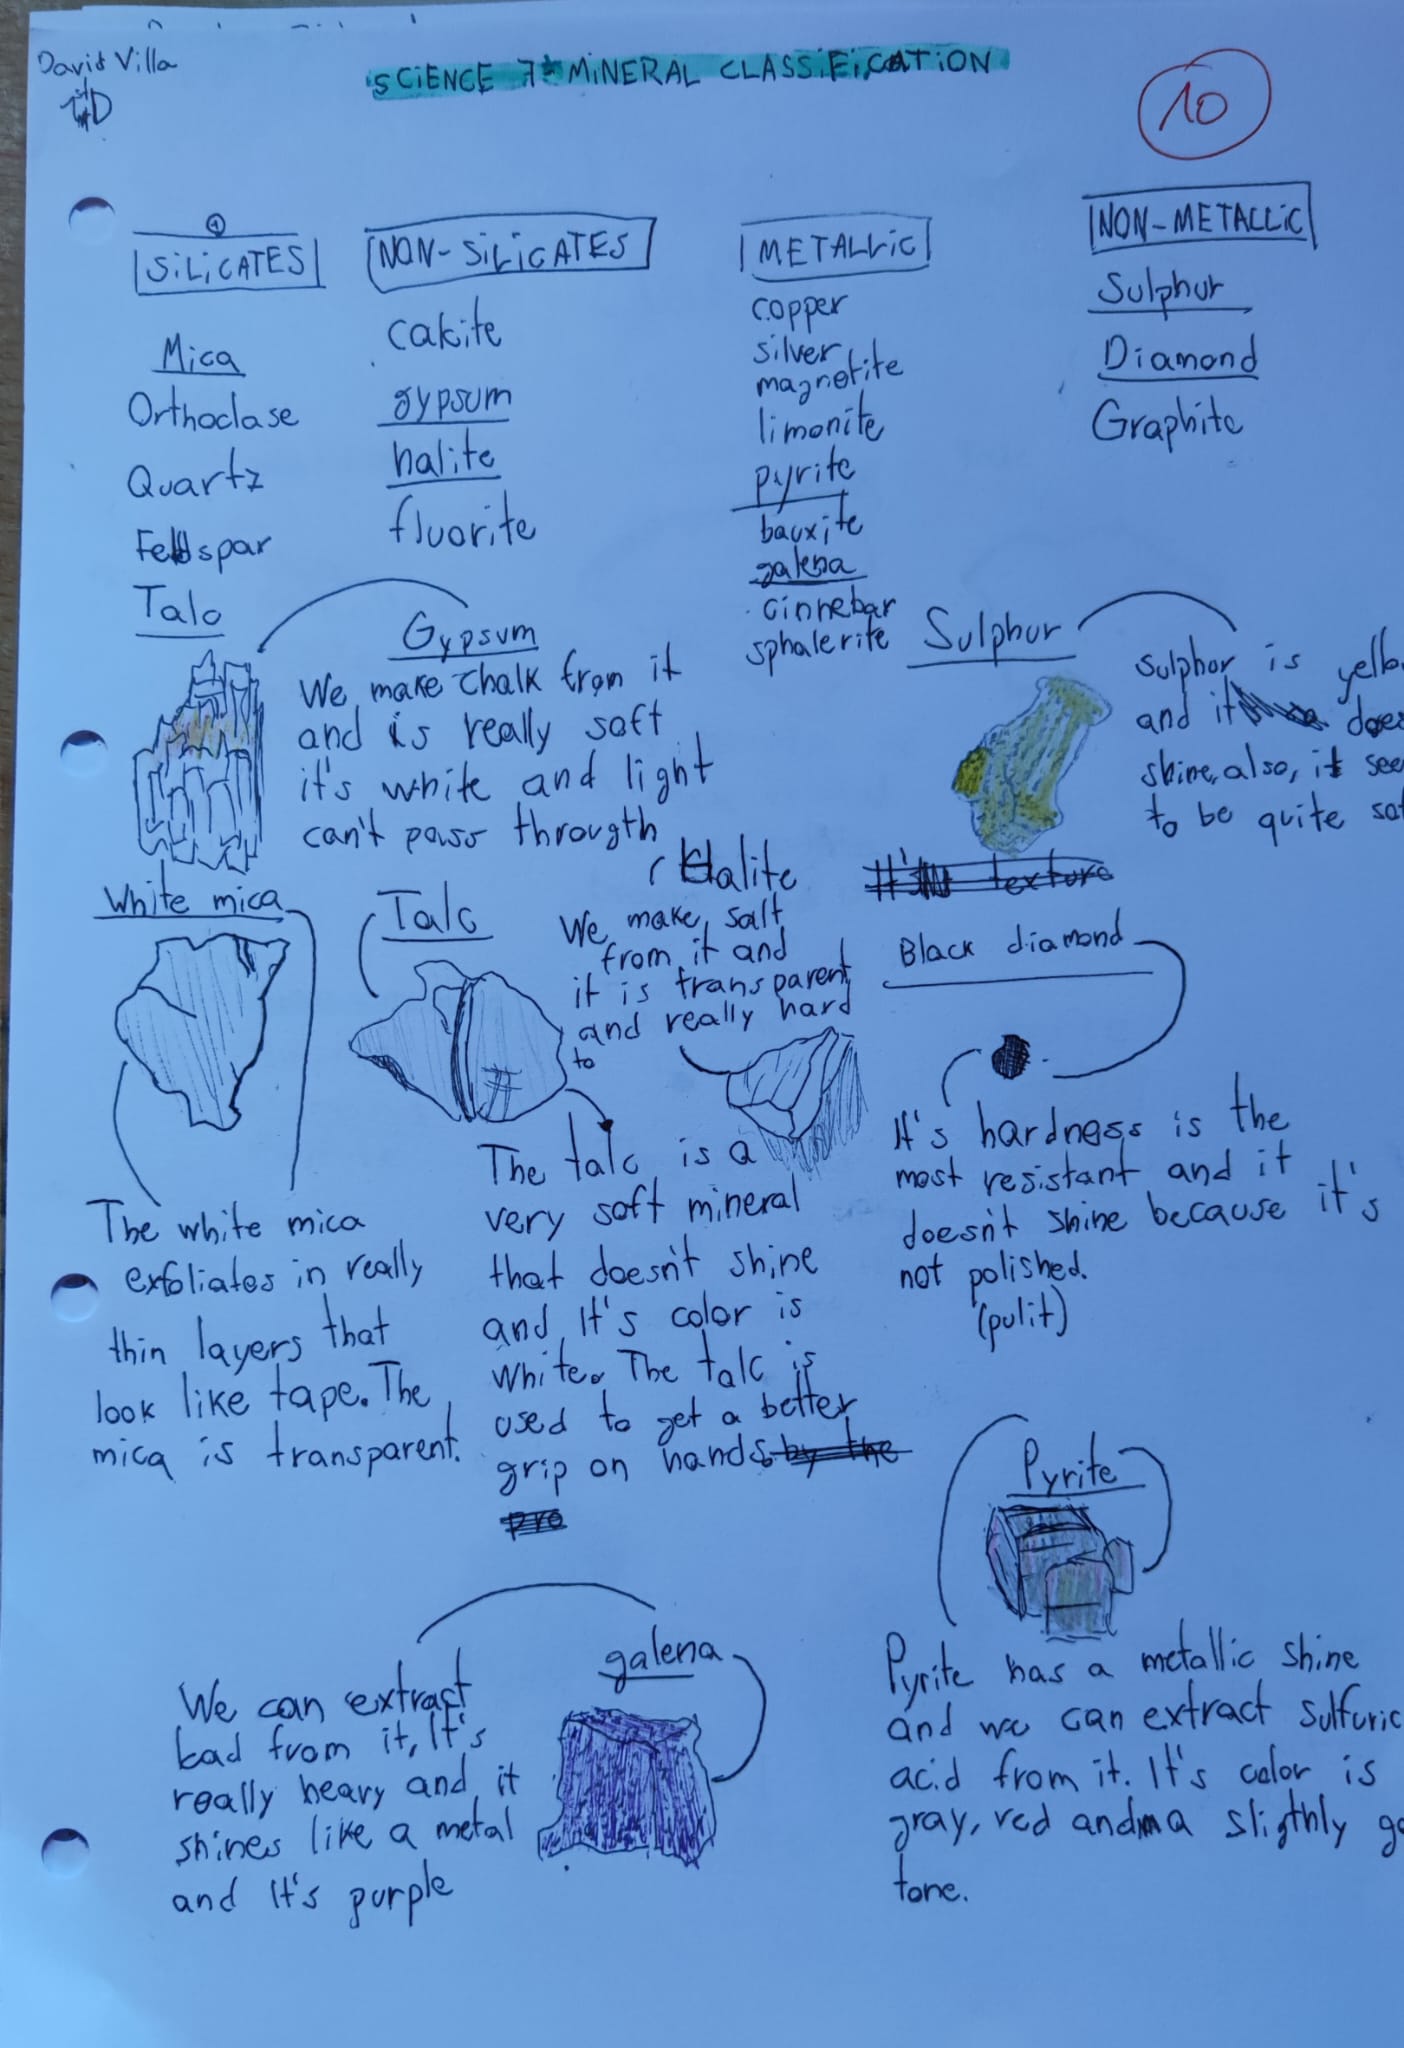 David Villa
1stD
SCIENCE 7: MINERAL CLASSIFICATION
10
SILICATES
Mica
Orthoclase
Quartz
Feldspar
Talc
NON-SILICATES
calcite
gypsum
halite
fluorite
METALLIC
copper
silver
magnetite
limonite
pyrite
bauxite
galena
cinnebar
sphalerite
NON-METALLIC
Sulphur
Diamond
Graphite
Gypsum
We make chalk from it
and is really soft
it's white and light
can't pass througth
Sulphur
Sulphur is
and it
shine, also, it
to be quite
It's texture
White mica
The white mica
exfoliates in really
thin layers that
look like tape. The
mica is transparent.
Talc
The talc is a
very soft mineral
that doesn't shine
and It's color is
white. The talc is
used to get a better
grip on hands by the
pro
Halite
We make salt
from it and
it is transparent
and really hard
to
Black diamond
It's hardness is the
most resistant and it
doesn't shine because it's
not polished.
(pulit)
Pyrite
Pyrite has a metallic shine
and we can extract sulfuric
acid from it. It's color is
gray, red and a sligthly
tone.
galena
We can extract
lead from it, It's
really heavy and it
shines like a metal
and It's purple